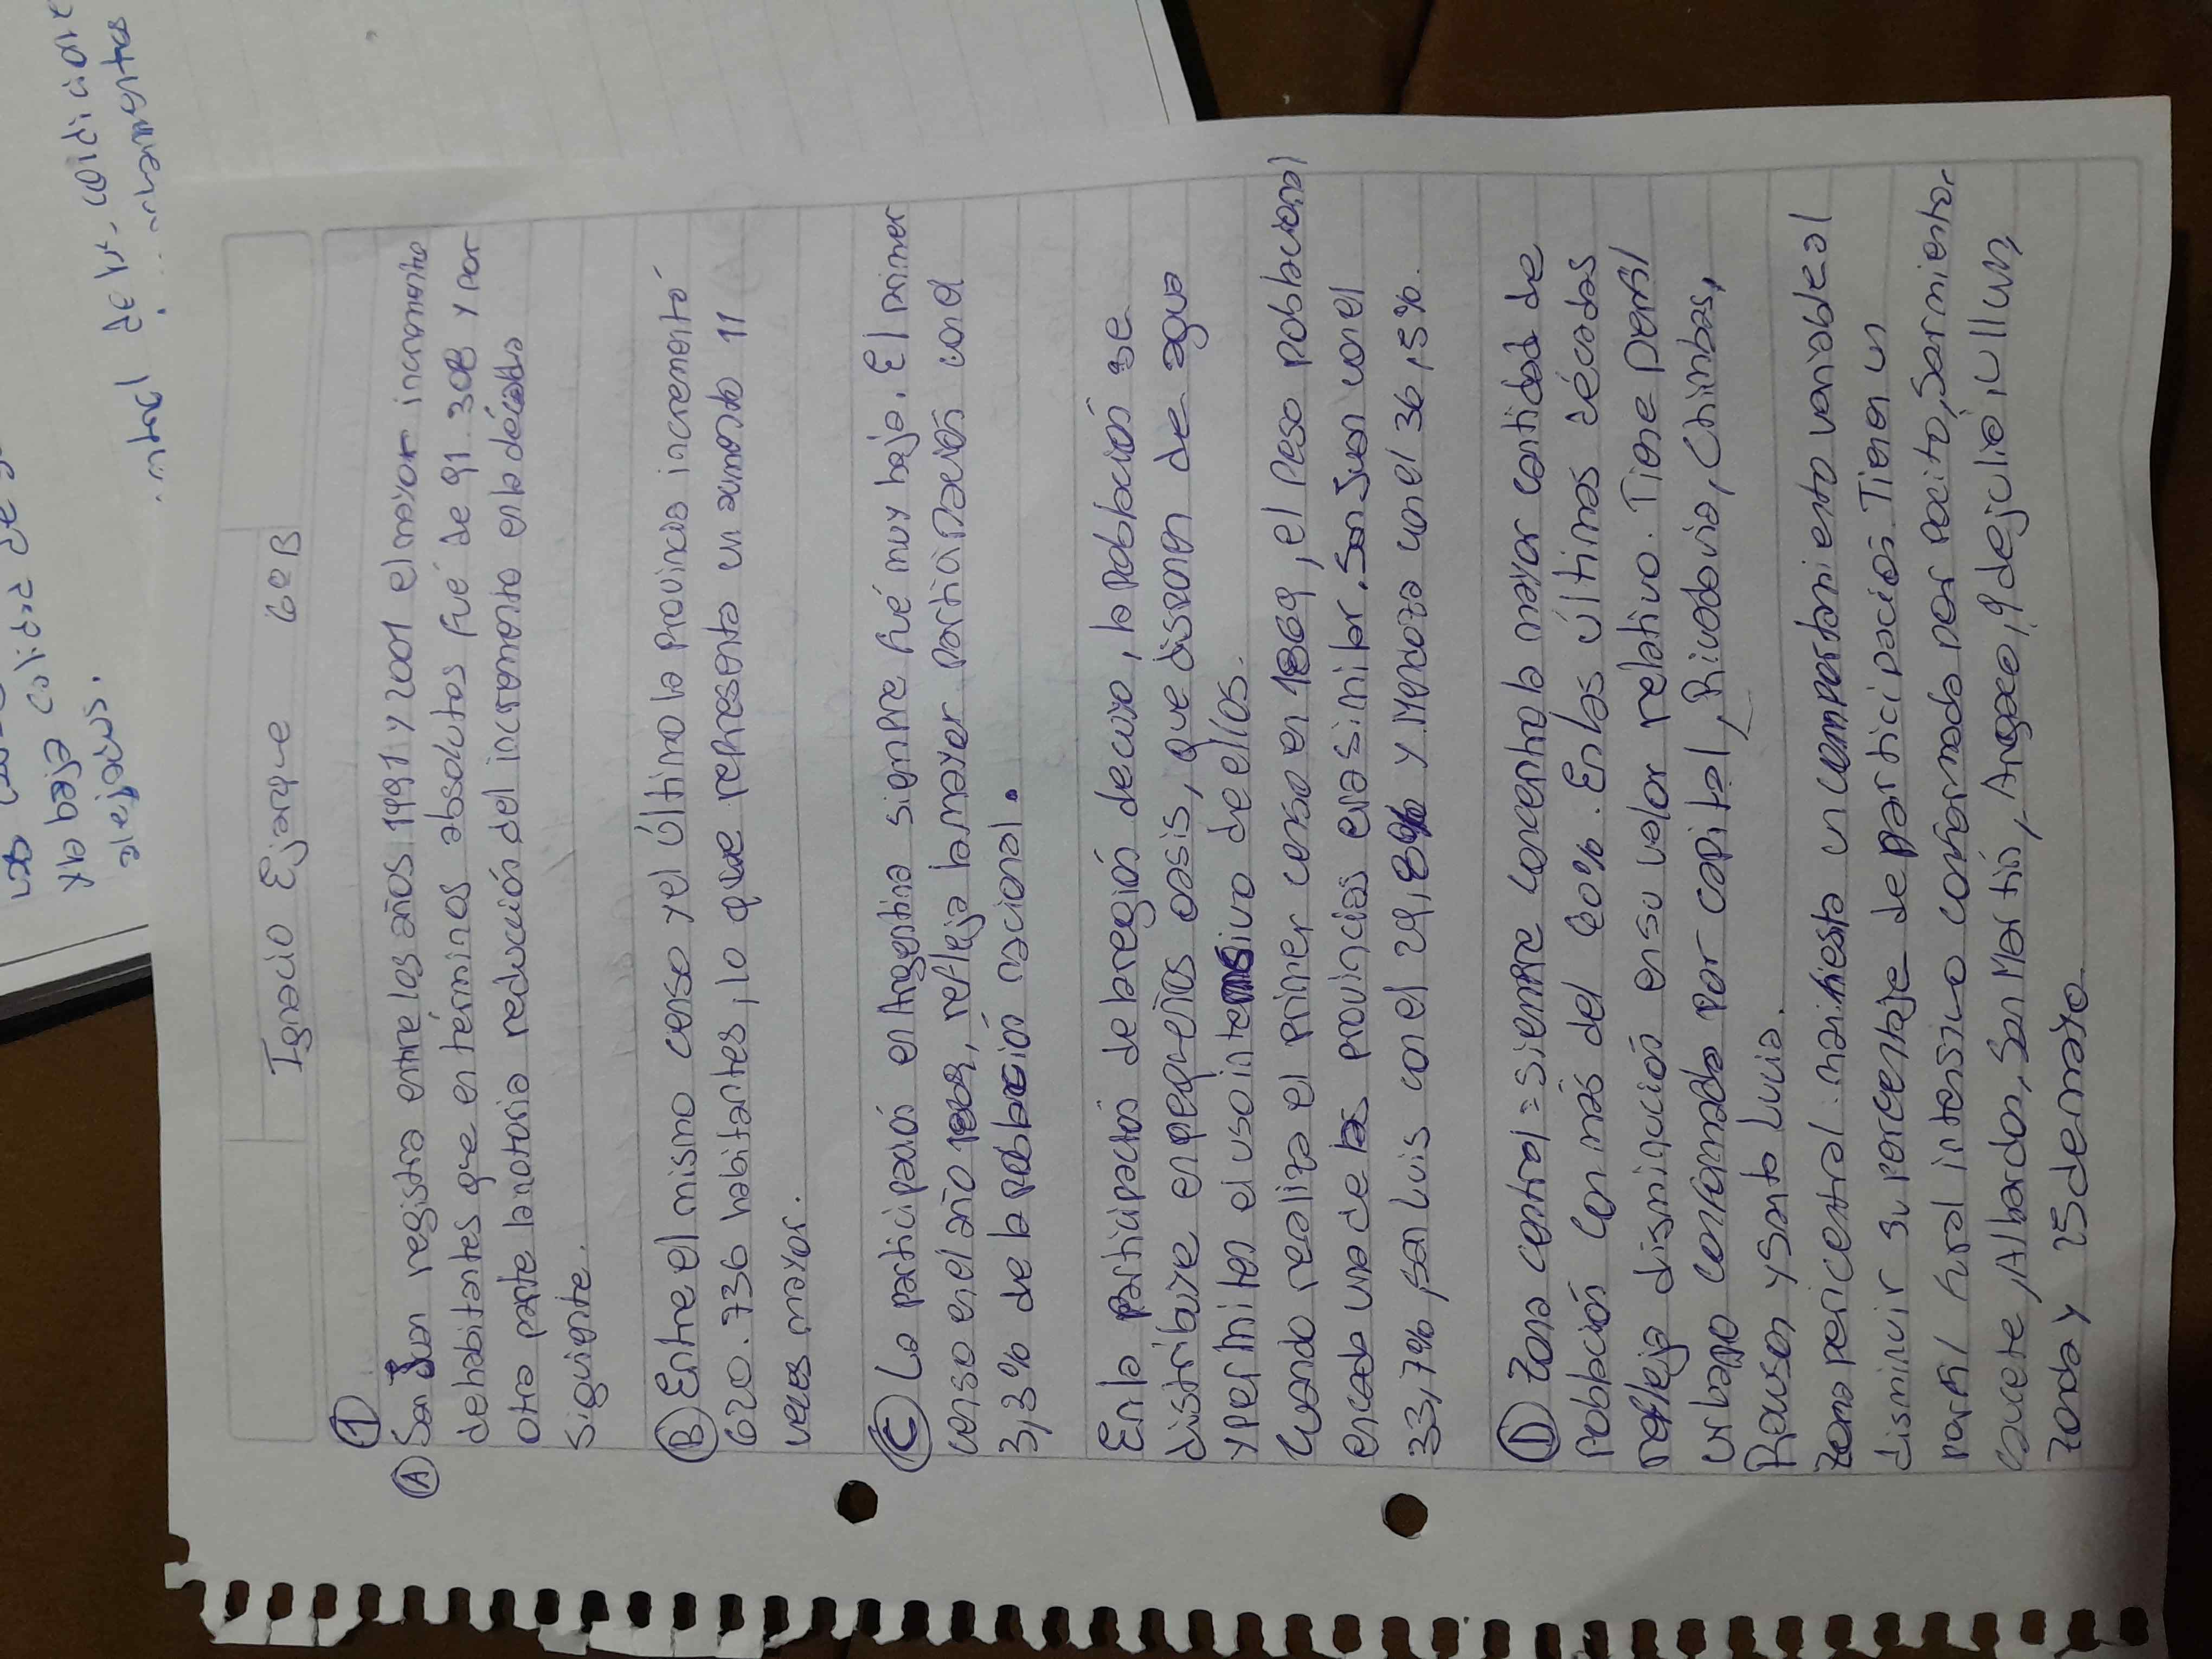 Ignacio Ejarque 6º B
①
Ⓐ San Juan registra entre los años 1991 y 2001 el mayor incremento
de habitantes que en términos absolutos fué de 91.308 y por
otra parte la notoria reducción del incremento en la década
siguiente.
Ⓑ Entre el mismo censo y el último la provincia incrementó
620.736 habitantes, lo que representa un aumento 11
veces mayor.
Ⓒ La participación en Argentina siempre fué muy baja. El primer
censo en el año refleja la mayor participación con el
3,3% de la población nacional.
En la participación de la región de cuyo, la población se
distribuye en pequeños oasis, que disponen de agua
y permiten el uso intensivo de ellos.
Cuando realiza el primer censo en 1869, el peso poblacional
en cada una de las provincias era similar. San Juan con el
33,7%, san Luis con el 29,8% y Mendoza con el 36,5%.
Ⓓ Zona central = siempre concentra la mayor cantidad de
población con más del 60%. En las últimas décadas
refleja disminución en su valor relativo. Tiene perfil
urbano conformada por capital, Rivadavia, Chimbas,
Rawson y Santa Lucia.
Zona pericentral: manifiesta un comportamiento variable al
disminuir su porcentaje de participación. Tienen un
perfil rural intensivo conformada por pocito, Sarmiento,
caucete, Albardón, San Martín, Angaco, 9 de julio, Ullum,
Zonda y 25 de mayo
y la baja calidad de
alejados.